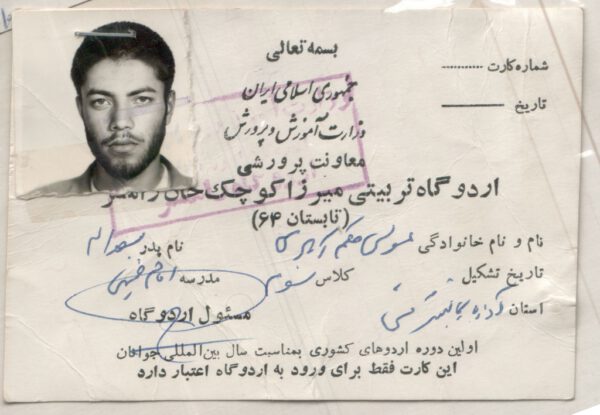 بسمه تعالی
شماره کارت ............
جمهوری اسلامی ایران
تاریخ
وزارت آموزش و پرورش
معاونت پرورشی
اردوگاه تربیتی میرزا کوچک خان رامسر
(تابستان ۶۴)
نام و نام خانوادگی نام پدر
تاریخ تشکیل کلاس سوم مدرسه امام خمینی
استان آذربایجان شرقی مسئول اردوگاه
اولین دوره اردوهای کشوری بمناسبت سال بین‌المللی جوانان
این کارت فقط برای ورود به اردوگاه اعتبار دارد